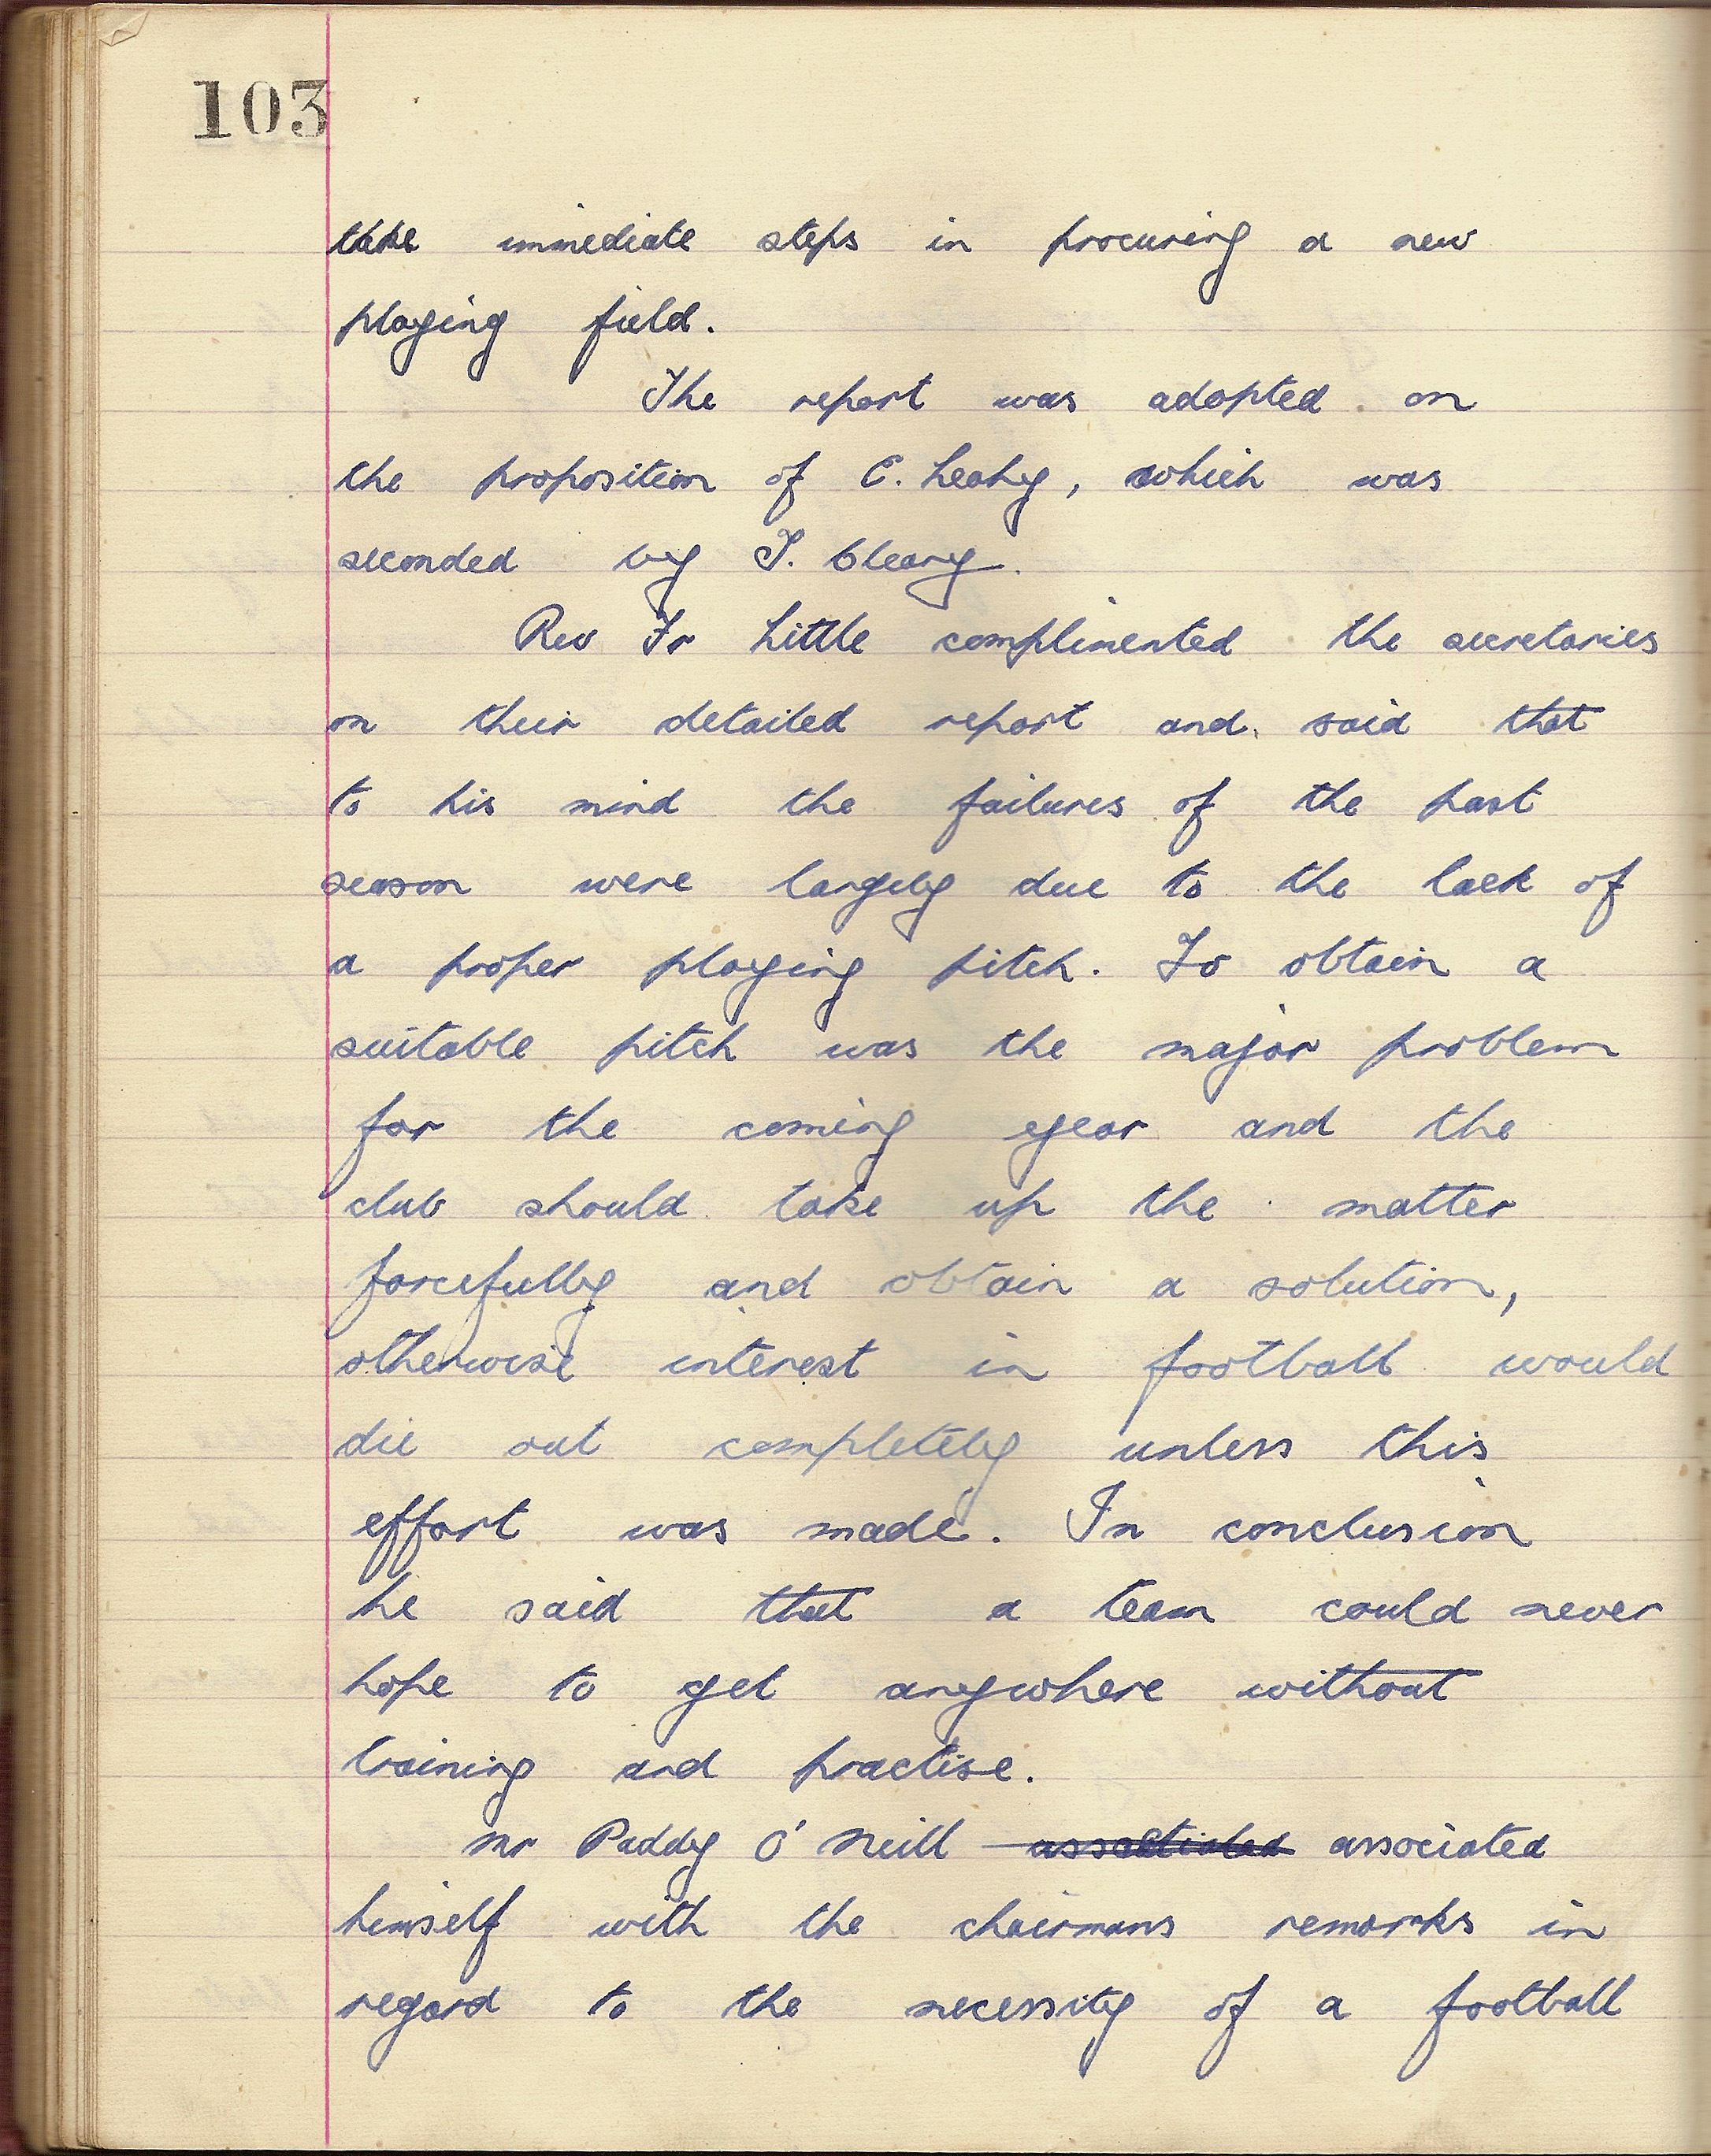 103
take immediate steps in procuring a new
playing field.
The report was adopted on
the proposition of C. Leahy, which was
seconded by T. Cleary.
Rev Fr Little complimented the secretaries
on their detailed report and said that
to his mind the failures of the past
season were largely due to the lack of
a proper playing pitch. To obtain a
suitable pitch was the major problem
for the coming year and the
club should take up the matter
forcefully and obtain a solution,
otherwise interest in football would
die out completely unless this
effort was made. In conclusion
he said that a team could never
hope to get anywhere without
training and practise.
Mr Paddy O' Neill associated
himself with the chairmans remarks in
regard to the necessity of a football